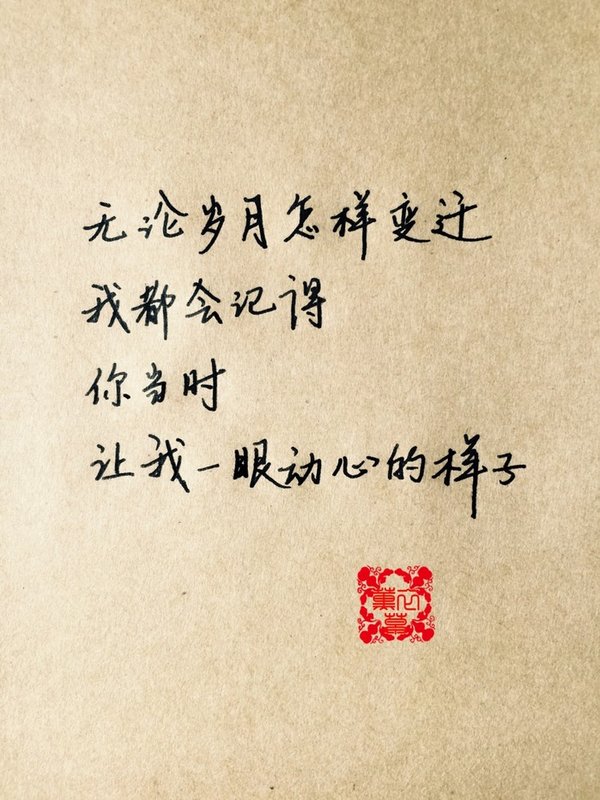 无论岁月怎样变迁
我都会记得
你当时
让我一眼动心的样子